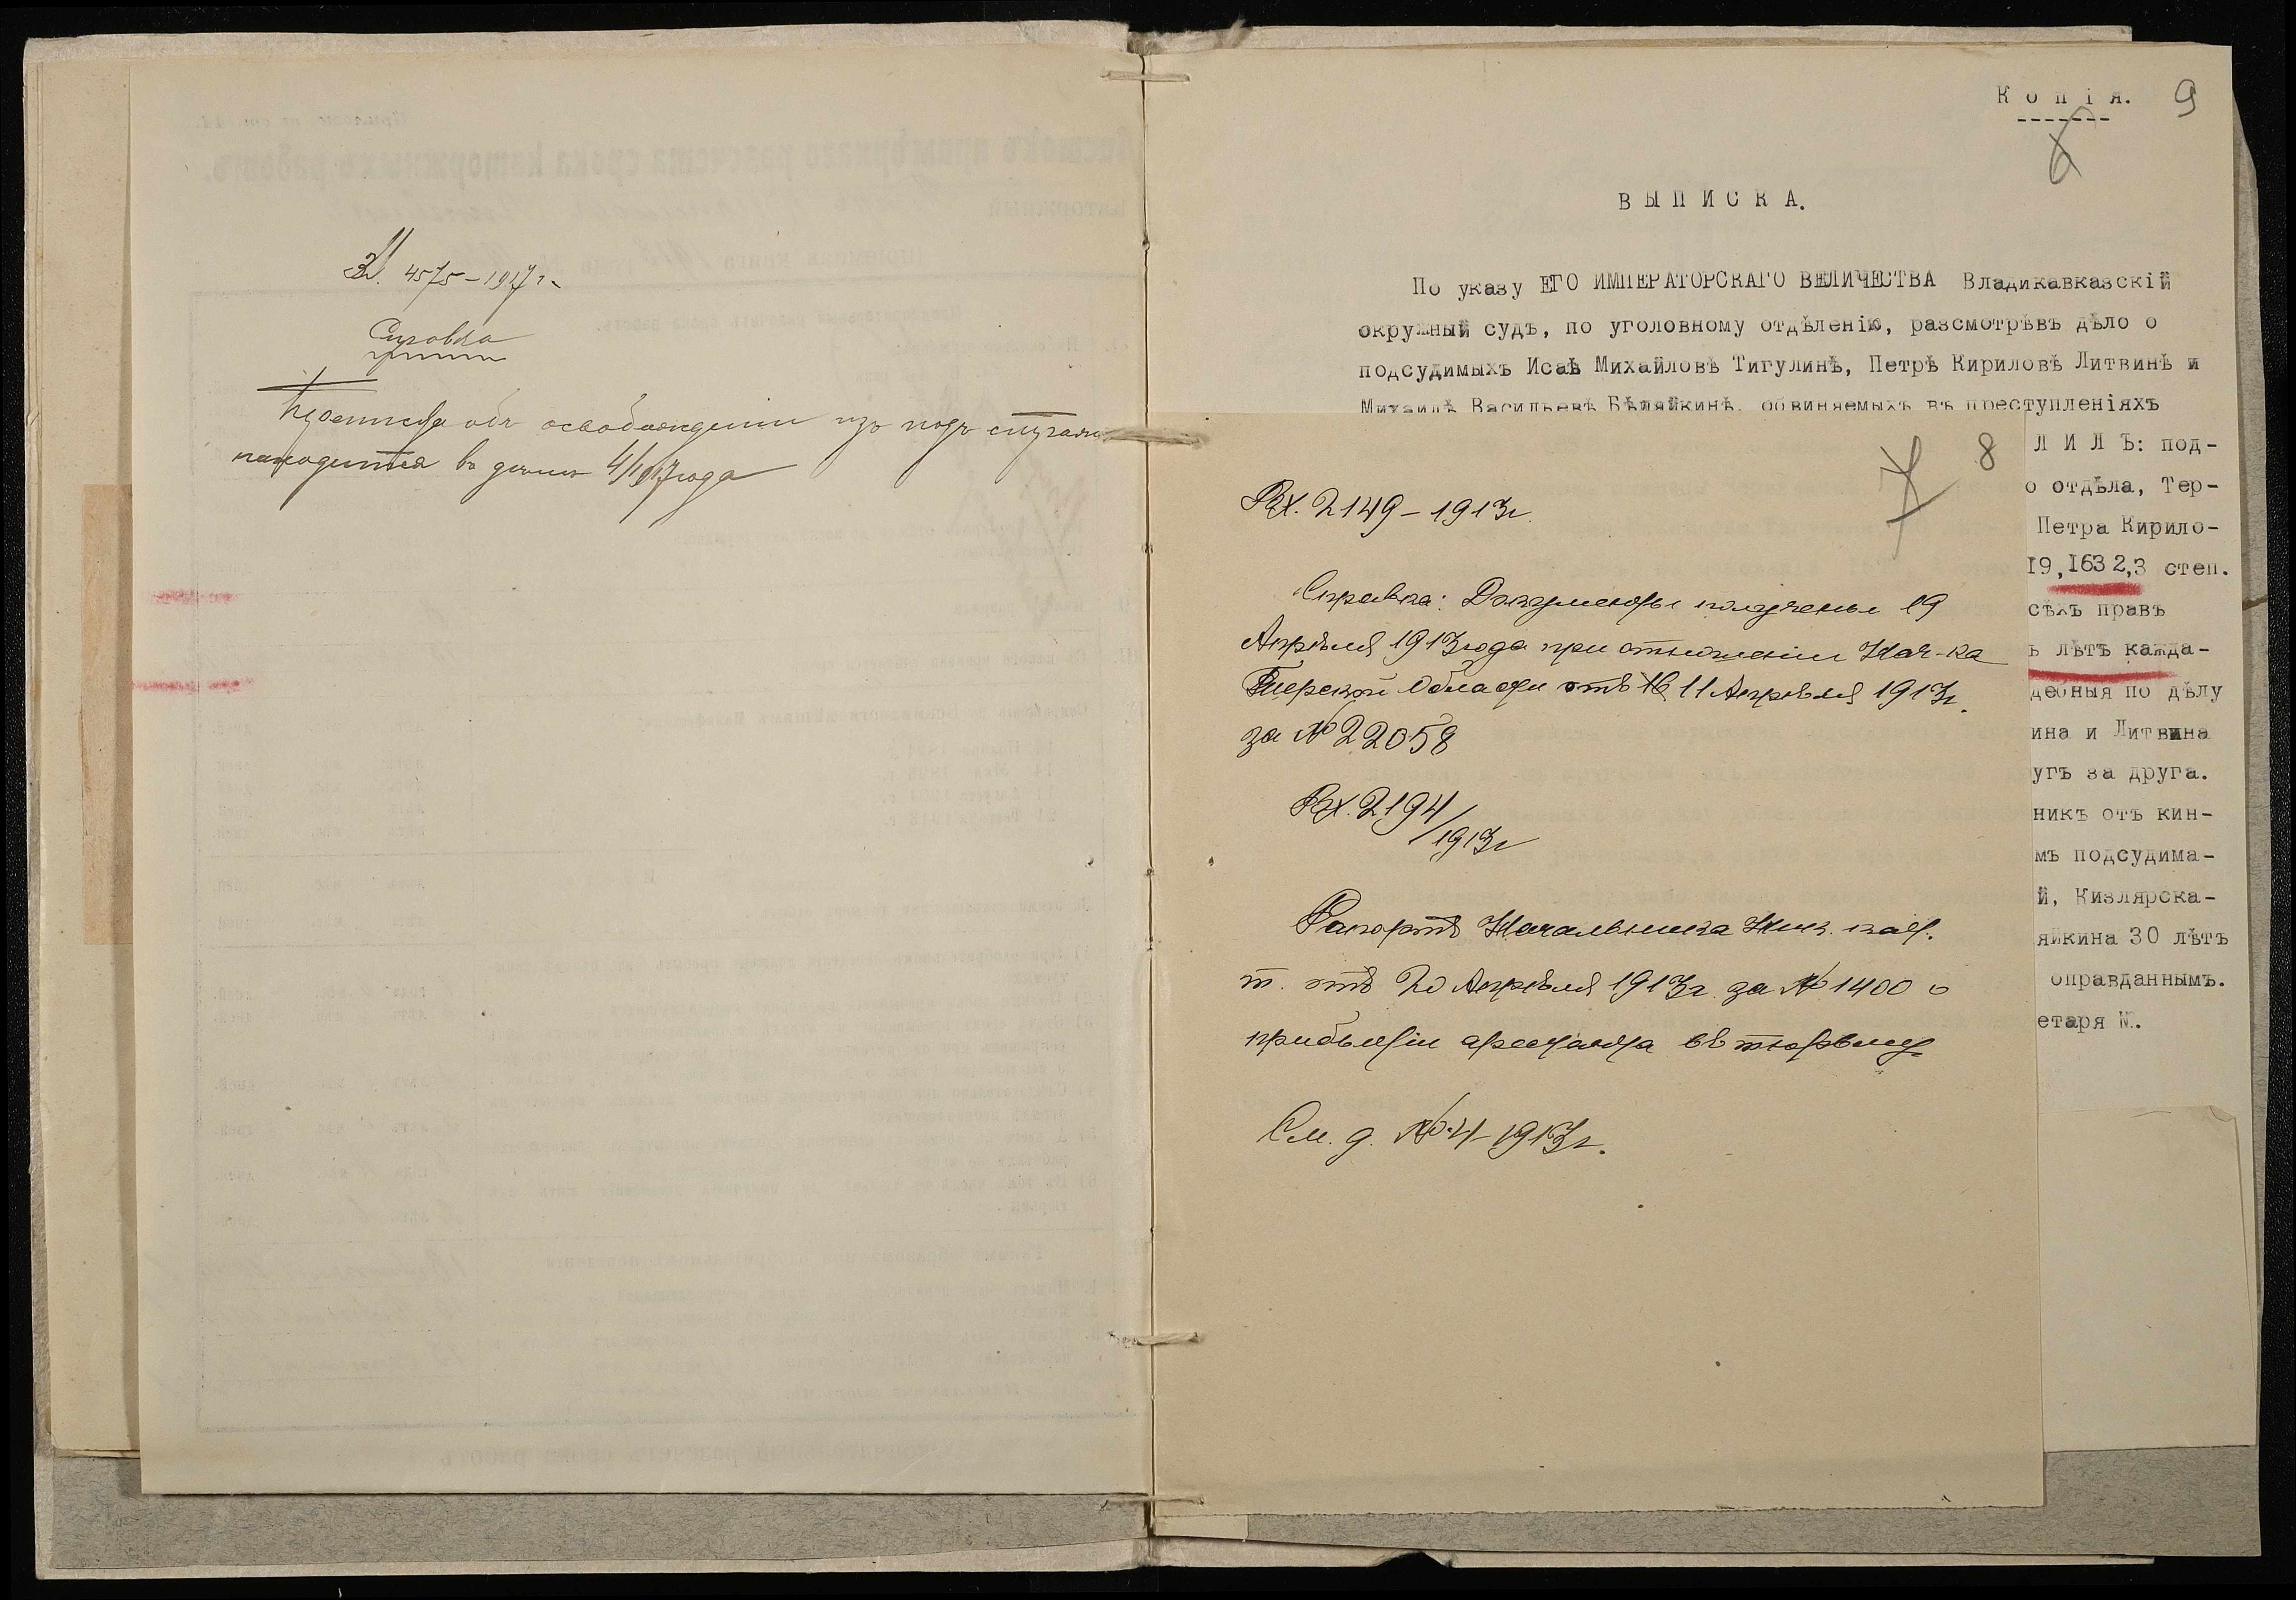 Вх. 4575–1917 г.
Справка
Переписка объ освобожденіи изъ подъ стражи
находится въ дѣлѣ 4/1917 года
Копія. 9
6
ВЫПИСКА.
По указу ЕГО ИМПЕРАТОРСКАГО ВЕЛИЧЕСТВА Владикавказскій
окружный судъ, по уголовному отдѣленію, разсмотрѣвъ дѣло о
подсудимыхъ Исаѣ Михайловѣ Тигулинѣ, Петрѣ Кириловѣ Литвинѣ и
Михаилѣ Васильевѣ Бѣляйкинѣ, обвиняемыхъ въ преступленіяхъ
ЛИЛЪ: под-
о отдѣла, Тер-
Петра Кирило-
I9,I63 2,3 степ.
сѣхъ правъ
ъ лѣтъ кажда-
дебныя по дѣлу
ина и Литвина
угъ за друга.
никъ отъ кин-
мъ подсудима-
й, Кизлярска-
яйкина 30 лѣтъ
оправданнымъ.
етаря
7 8
Вх. 2149–1913 г.
Справка: Документы получены 19
Апрѣля 1913 года при отношеніи Нач-ка
Терской Области отъ 11 Апрѣля 1913 г.
за № 22058
Вх. 2194/1913 г
Рапортъ Начальника Ник. кат.
т. отъ 20 Апрѣля 1913 г. за № 1400 о
прибытіи арестанта въ тюрьму
См. д. № 4–1913 г.